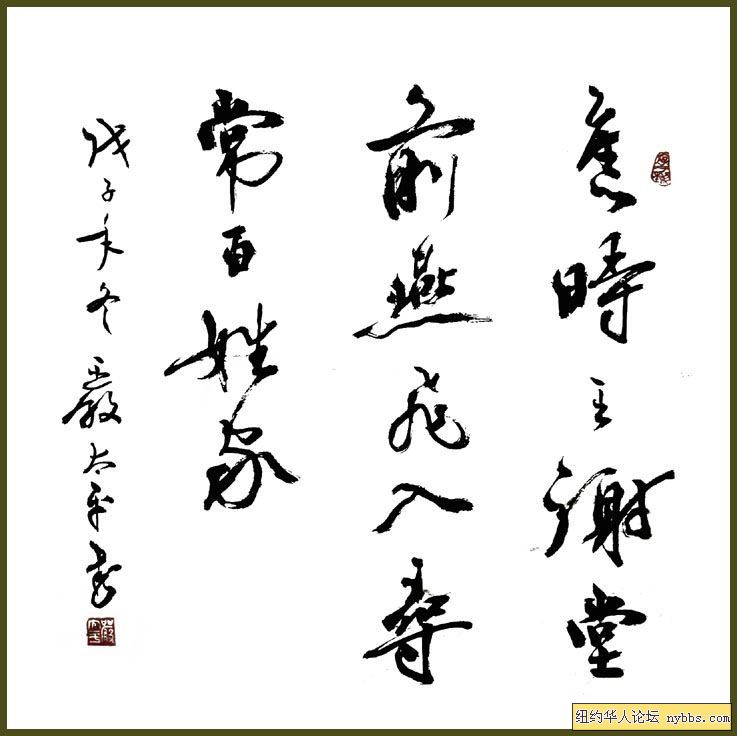 舊時王謝堂
前燕飛入尋
常百姓家
戊子年冬嚴太平書
纽约华人论坛 nybbs.com